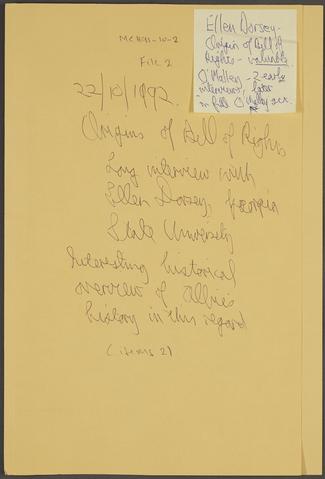 MCH91-10-2
File 2
22/10/1992.
Ellen Dorsey -
Origin of Bill of
Rights - valuable
O'Malley - 2 early
interviews, later
in file O'Malley acc.
Origins of Bill of Rights
Long interview with
Ellen Dorsey, Georgia
State University
Interesting historical
overview of Albie's
history in this regard
(items 2)